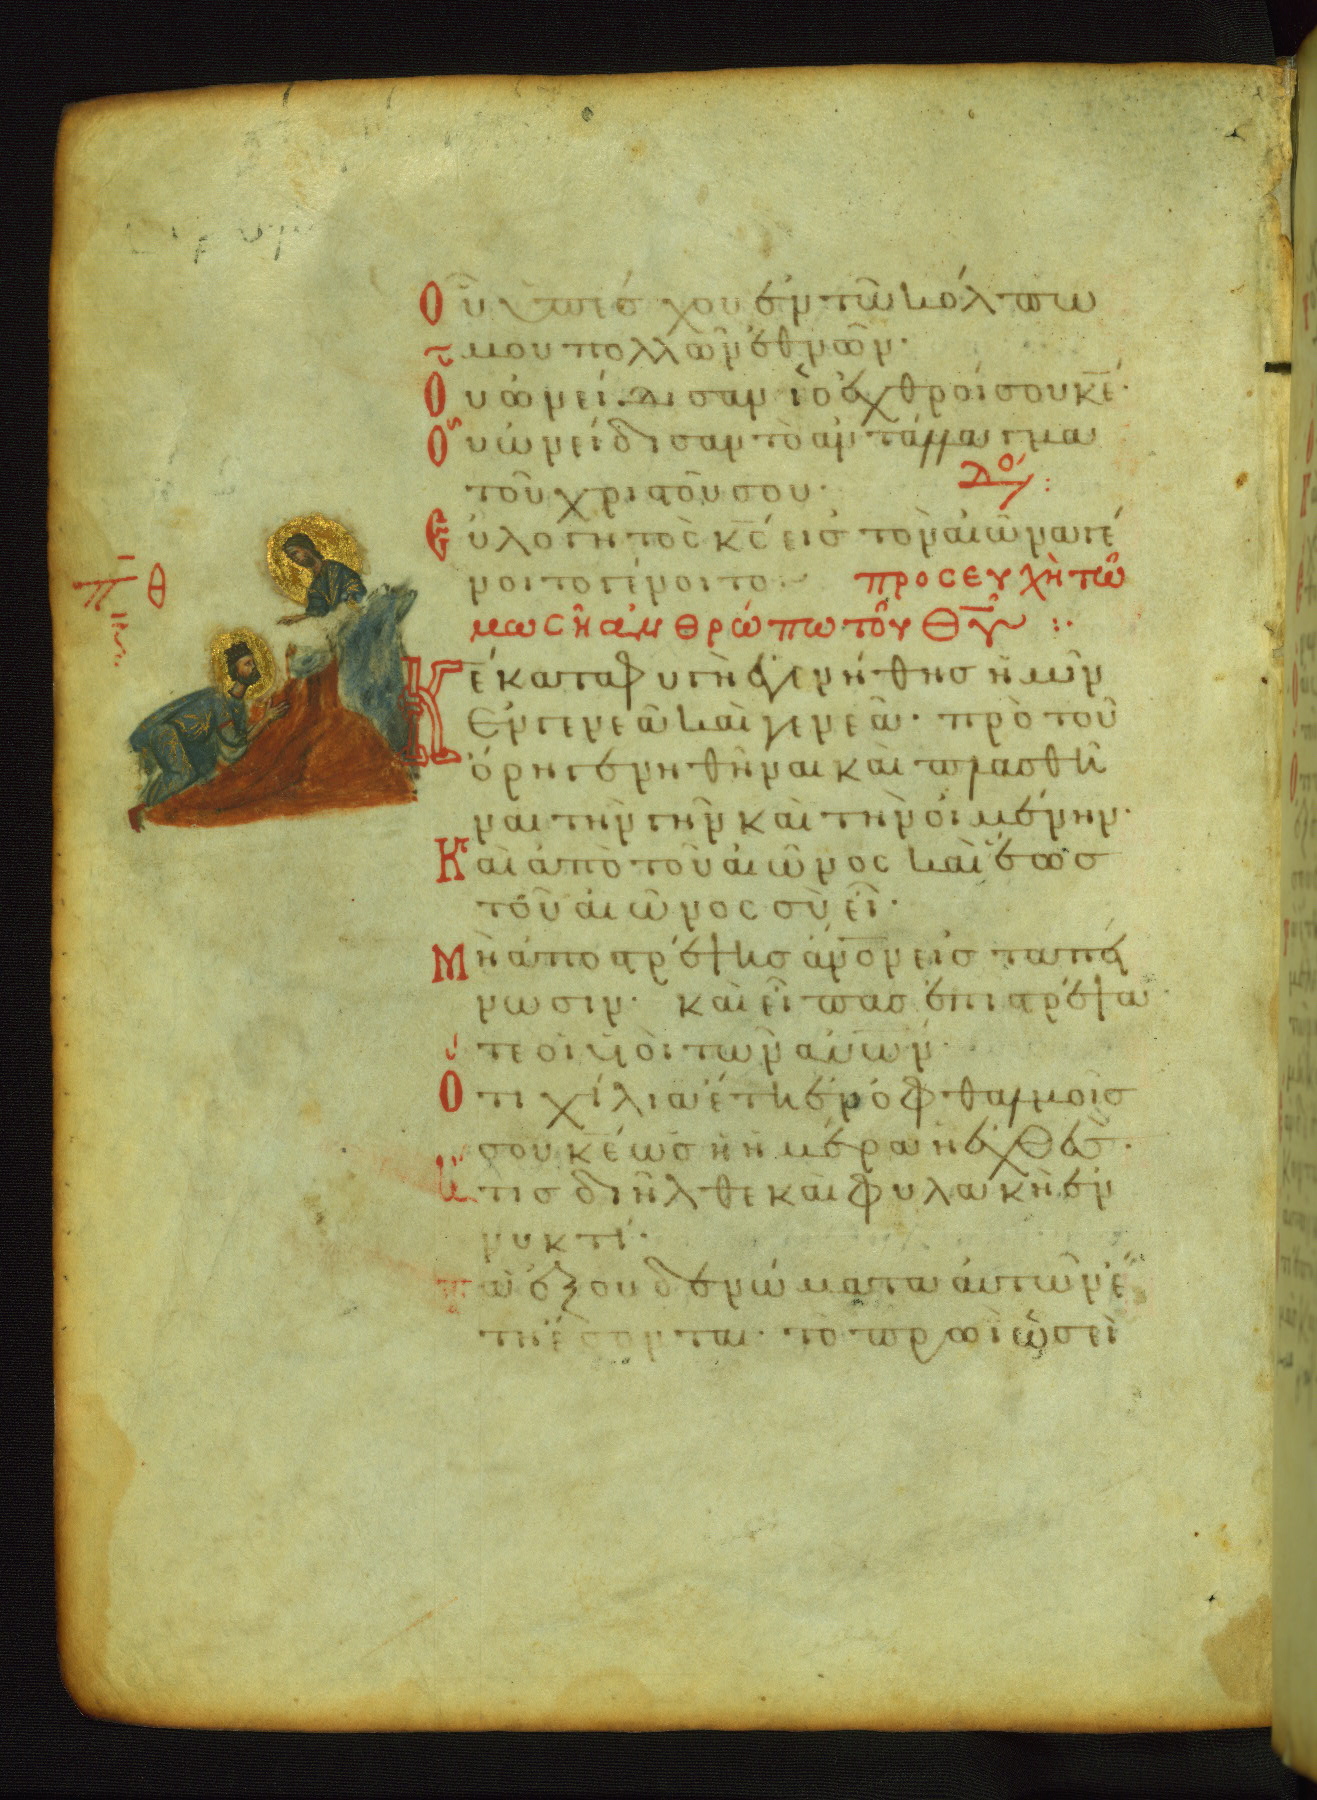 Οὗ ὑπέσχον ἐν τῶ κόλπω
μου πολλῶν ἐθνῶν·
Οὗ ὠνείδισαν ὁι ἐχθροί σου κ̅ε̅·
Οὗ ὠνείδισαν τὸ ἀντάλλαγμα
τοῦ χριστοῦ σου·
Ευλογητὸς κ̅ς̅ εἰς τὸν ἀιῶνα γέ
νοιτο γένοιτο· προσευχὴ τῶ
μωσῆ ἀνθρώπω τοῦ Θ̅υ̅ :·
πθ
Κ̅ε̅ καταφυγὴ ἐγενήθης ἡμῖν
Εν γενεᾶ καὶ γενεᾶ· πρὸ τοῦ
ὄρη γενηθῆναι καὶ πλασθῆ
ναι τὴν γῆν καὶ τὴν ὀικουμένην·
Καὶ ἀπὸ τοῦ ἀιῶνος καὶ ἕως
τοῦ ἀιῶνος σὺ εῖ·
Μὴ ἀποστρέψης ἄν̅ο̅ν̅ εἰς ταπεί
νωσιν· καὶ εῖπας ἐπιστρέψα
τε ὁι υἱὸι τῶν ἀν̅ω̅ν̅·
Οτι χίλια ἔτη ἐν ὀφθαλμοῖς
σου κ̅ε̅ ὡς ἡ ἡμέρα ἡ ἐχθὲς·
ἥτις διῆλθε καὶ φυλακὴ ἐν
νυκτί·
τὰ ἐξουδενώματα ἀυτῶν ἔ
τη ἔσονται· τὸ πρωῒ ὡσεὶ